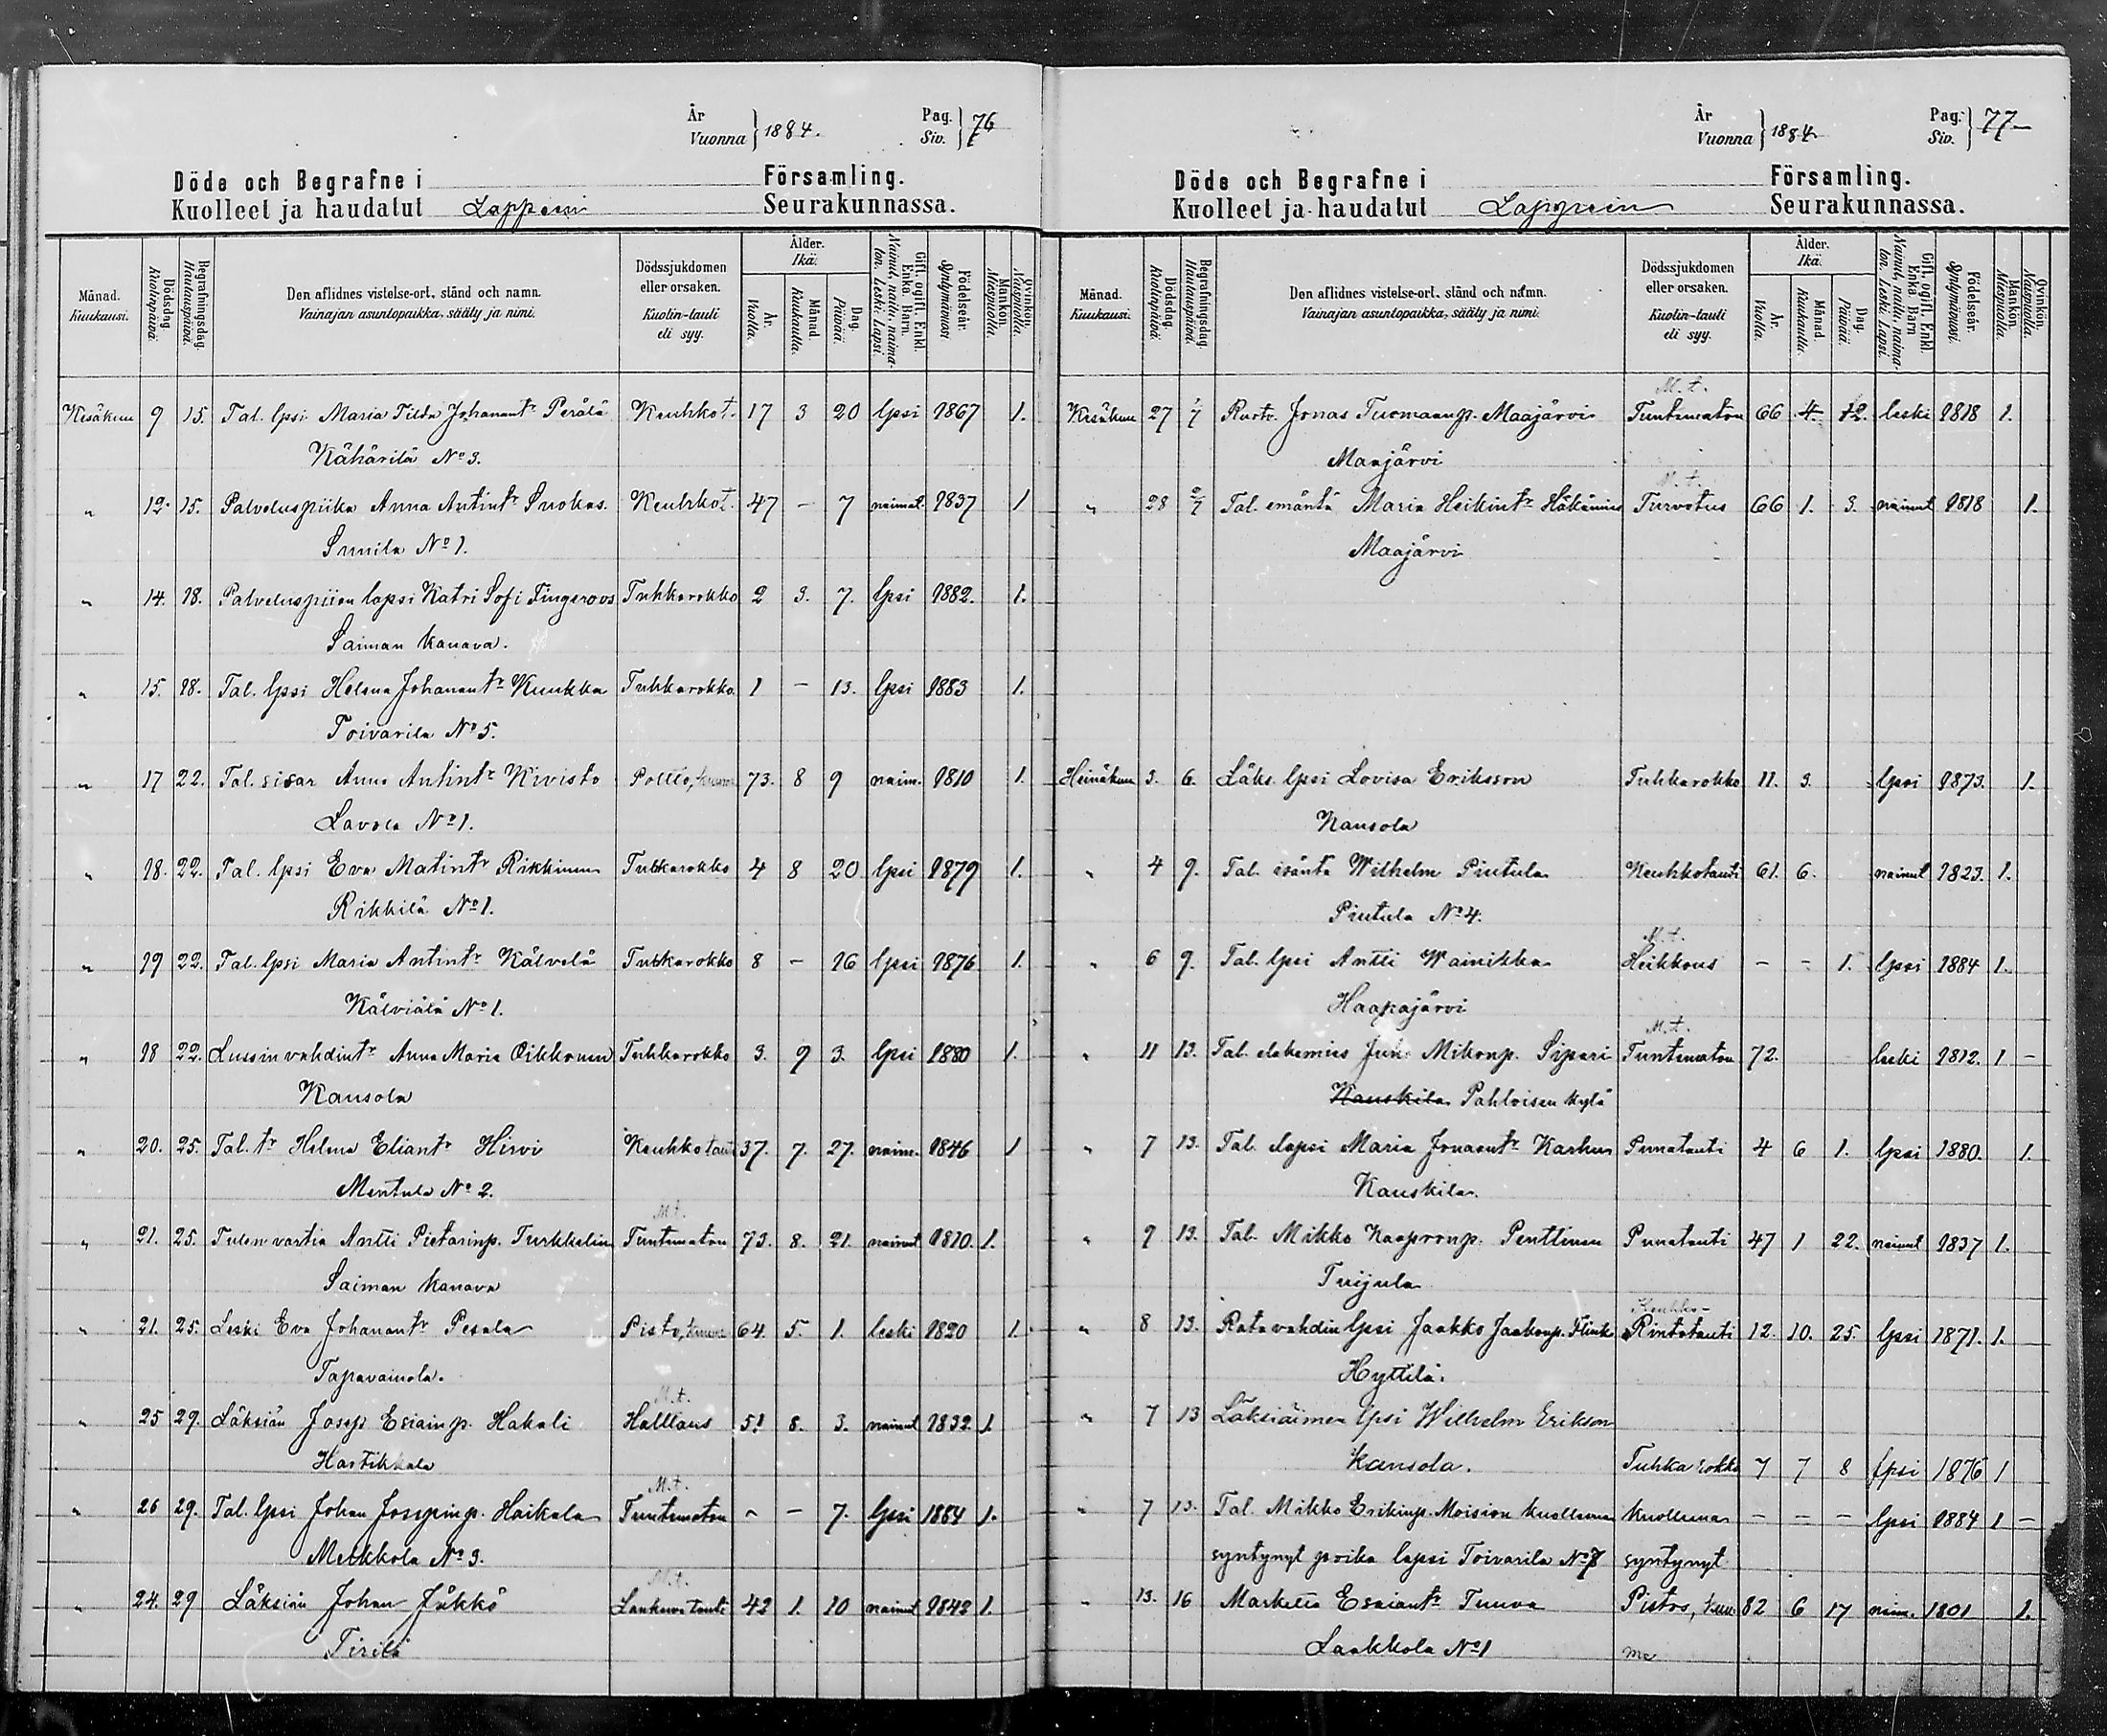 År
Vuonna } 1884.
Pag.
Siv. } 76
Döde och Begrafne i Församling.
Kuolleet ja haudatut Lappeen Seurakunnassa.
Månad. Kuukausi.
Dödsdag. Kuolinpäivä.
Begrafningsdag. Hautauspäivä.
Den aflidnes vistelse-ort, stånd och namn. Vainajan asuntopaikka, sääty ja nimi.
Dödssjukdomen eller orsaken. Kuolin-tauti eli syy.
Ålder. Ikä.
År. Vuotta.
Månad. Kuukautta.
Dag. Päivää.
Gift, ogift, Enkl. Enka. Barn. Nainut, naitu, naimaton. Leski. Lapsi.
Födelseår. Syntymävuosi.
Mankön. Miespuolia.
Qvinkön. Naispuolia.
Kesäkuu 9 15. Tal. lpsi Maria Tilda Johanant^r Perälä Keuhkot. 17 3 20 lpsi 1867 1.
Kähärilä N:o 3.
" 12. 15. Palveluspiika Anna Antint^r Suokas Keuhkot. 47 - 7 naimat. 1837 1
Sunila N:o 1.
" 14. 18. Palveluspiian lapsi Katri Sofi Fingeroos Tuhkarokko 2 3. 7. lpsi 1882. 1.
Saiman kanava.
" 15. 18. Tal. lpsi Helena Johanant^r Kuukka Tuhkarokko 1 - 13. lpsi 1883 1.
Toivarila N:o 5.
" 17 22. Tal. sisar Anna Antint^r Kivisto Poltto, kuume 73. 8 9 naim. 1810 1.
Lavola N:o 1.
" 18. 22. Tal. lpsi Eva Matint^r Rikkinen Tuhkarokko 4 8 20 lpsi 1879 1.
Rikkilä N:o 1.
" 19 22. Tal. lpsi Maria Antint^r Kälvelä Tuhkarokko 8 - 16 lpsi 1876 1.
Kälviälä N:o 1.
" 18 22. Lussin vahdint^r Anna Maria Oikkonen Tuhkarokko 3. 9 3. lpsi 1880 1.
Kansola
" 20. 25. Tal. t^r Helena Eliant^r Hirvi Keuhkotauti 37. 7. 27. naim. 1846 1
Mentula N:o 2.
M.t.
" 21. 25. Tulen vartia Antti Pietarinp. Turkkelin Tuntematon 73. 8. 21. nainut 1810. 1.
Saiman kanava
" 21. 25. Leski Eva Johanant^r Pesala Pisto, kuume 64. 5. 1. leski 1820 1.
Tapavainola.
M.t.
" 25 29. Läksiän Josep Esiainp. Hakali Halttaus 51 8. 3. nainut 1832. 1.
Hartikkala
M.t.
" 26 29. Tal. lpsi Johan Josepinp. Haikala Tuntematon - - 7. lpsi 1884 1.
Merkkola N:o 3.
M.t.
" 24. 29 Läksiän Johan Jäkkö Lankuvotauti 42 1. 10 nainut 1842 1.
Tirilä
År
Vuonna } 1884
Pag.
Siv. } 77
Döde och Begrafne i Församling.
Kuolleet ja haudatut Lappeen Seurakunnassa.
Månad. Kuukausi.
Dödsdag. Kuolinpäivä.
Begrafningsdag. Hautauspäivä.
Den aflidnes vistelse-ort, stånd och namn. Vainajan asuntopaikka, sääty ja nimi.
Dödssjukdomen eller orsaken. Kuolin-tauti eli syy.
Ålder. Ikä.
År. Vuotta.
Månad. Kuukautta.
Dag. Päivää.
Gift, ogift, Enkl. Enka. Barn. Nainut, naitu, naimaton. Leski. Lapsi.
Födelseår. Syntymävuosi.
Mankön. Miespuolia.
Qvinkön. Naispuolia.
M.t.
Kesäkuu 27 1/7 Jonas Tuomaanp. Maajärvi Tuntematon 66 4. 12. leski 1818 1.
Maajärvi
M.t.
" 28 2/7 Tal. emäntä Maria Heikint^r Häkämies Turvotus 66 1. 3. nainut 1818 1.
Maajärvi
Heinäkuu 3. 6. Läks. lpsi Lovisa Eriksson Tuhkarokko 11. 3. lpsi 1873. 1.
Kansola
" 4 9. Tal. isäntä Wilhelm Piutula Keuhkotauti 61. 6. nainut 1823. 1.
Piutula N:o 4.
M.t.
" 6 9. Tal. lpsi Antti Wainikka Heikkous - - 1. lpsi 1884 1.
Haapajärvi
M.t.
" 11 13. Tal. elakemies Juh. Mikonp. Sipari Tuntematon 72. leski 1812. 1 -
Kauskila Pahloisen kylä
" 7 13. Tal. lapsi Maria Jonaant^r Karhu Punatauti 4 6 1. lpsi 1880. 1.
Kauskila.
" 9 13. Tal. Mikko Kaapronp. Penttinen Punatauti 47 1 22. nainut 1837 1.
Tuijula
Keuhko-
" 8 13. Ratavahdin lpsi Jaakko Jaakonp. Flink Rintatauti 12. 10. 25. lpsi 1871. 1.
Hyttilä.
" 7 13 Läksiäimen lpsi Wilhelm Erikson
Kansola. Tuhkarokko 7 7 8 lpsi 1876 1
" 7 13. Tal. Mikko Erikinp. Moision kuolleena kuolleena - - - lpsi 1884 1 -
syntynyt poika lapsi Toivarila N:o 7 syntynyt
" 13. 16 Marketta Esaiant^r Tuuva Pistos, kuu- 82 6 17 naim. 1801 1.
Laakkola N:o 1 me